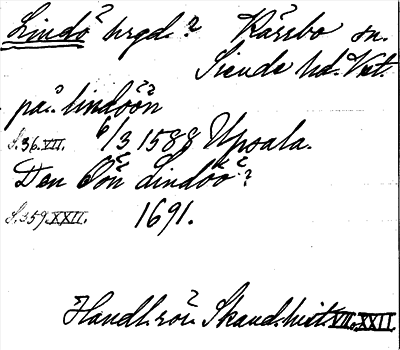 Lindö hrgd.? Kärrbo sn.
Siende hd. Vstl.
på lindöön
S.36.VII. 6/3 1588 Upsala.
Den Öön Lindöö?
S.359.XXII. 1691.
Handl. rör. Skand. hist. VII. XXII.